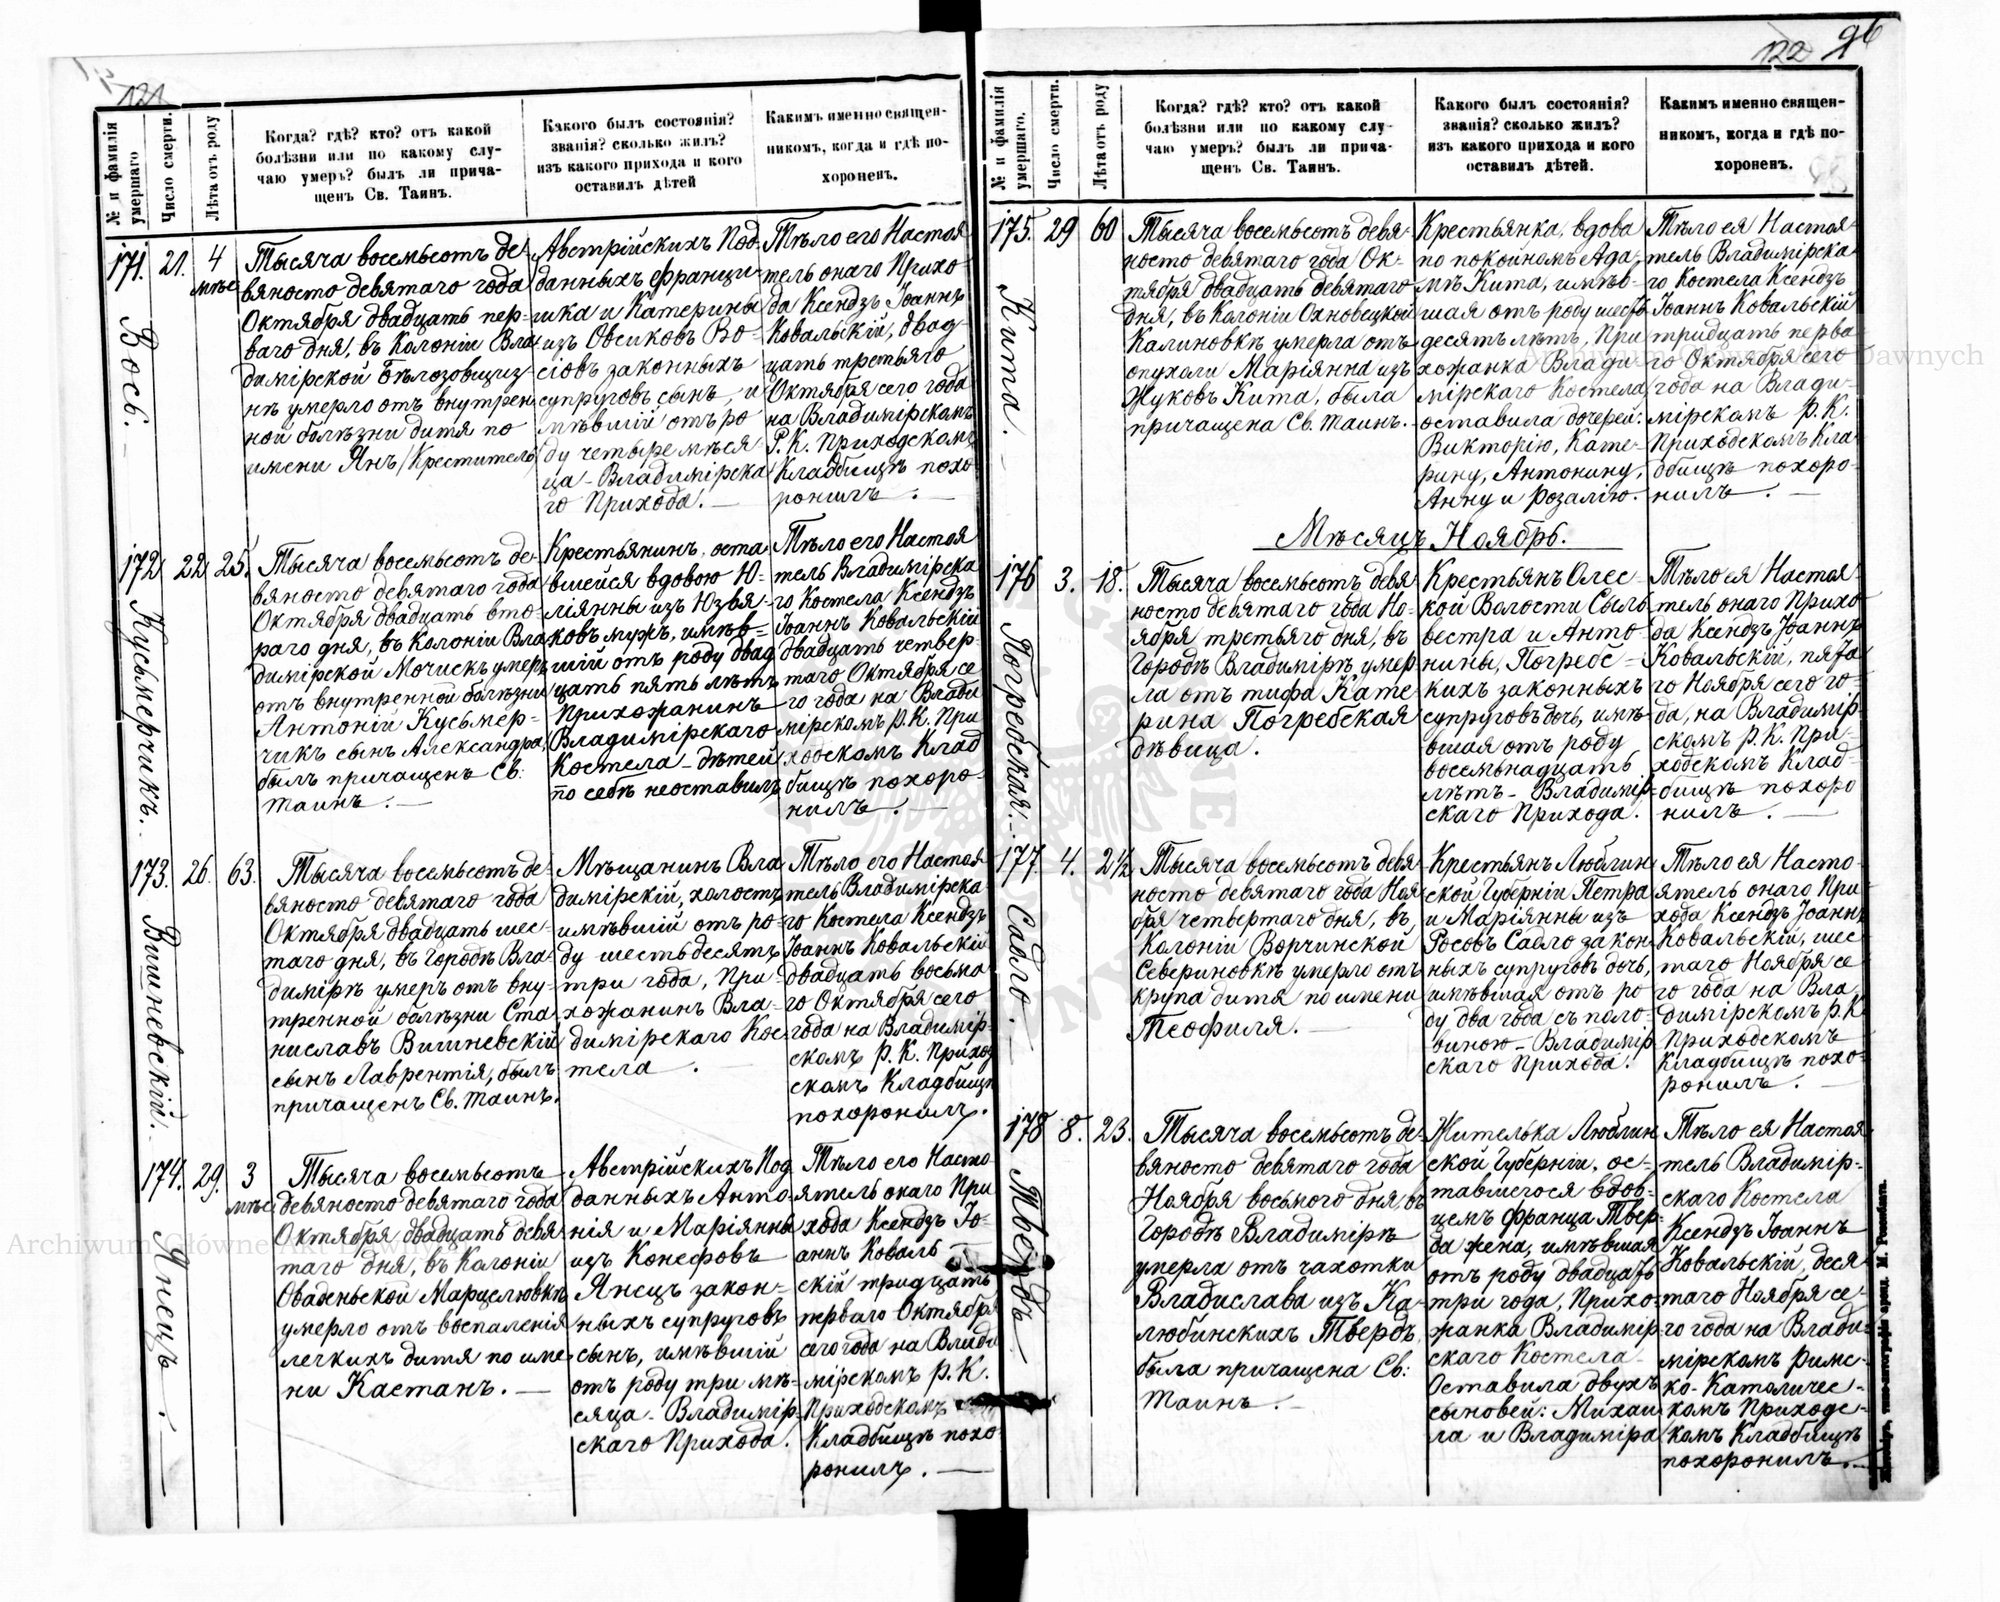 121
№ и фамилія умершаго
Число смерти.
Лѣта отъ роду
Когда? гдѣ? кто? отъ какой
болѣзни или по какому слу-
чаю умеръ? былъ ли прича-
щенъ Св. Таинъ.
Какого былъ состоянія?
званія? сколько жилъ?
изъ какого прихода и кого
оставилъ дѣтей
Какимъ именно священ-
никомъ, когда и гдѣ по-
хороненъ.
171.
Вось.
21.
4
мѣс
Тысяча восемьсотъ де-
вяносто девятаго года
Октября двадцать пер-
ваго дня, въ Колоніи Вла
димірской Бѣлозовщиз
нѣ умерло отъ внутрен
ной болѣзни дитя по
имени Янъ/Креститель
Австрійскихъ Под
данныхъ Франци-
шка и Катерины
изъ Овсиковъ Во-
сіовъ законныхъ
супруговъ сынъ, и
мѣвшій отъ ро
ду четыре мѣся
ца - Владимірска
го Прихода. —
Тѣло его Настоя
тель онаго Прихо
да Ксендзъ Іоаннъ
Ковальскій, двад
цать третьяго
Октября сего года
на Владимірскомъ
Р. К. Приходскомъ
Кладбищѣ похо
ронилъ. —
172
Кусьмерчикъ.
22
25.
Тысяча восемьсотъ де-
вяносто девятаго года
Октября двадцать вто-
раго дня, въ Колоніи Вла
димірской Мочискъ умеръ
отъ внутренной болѣзни
Антоній Кусьмер-
чикъ сынъ Александра,
былъ причащенъ Св:
Таинъ. —
Крестьянинъ, оста
вшейся вдовою Ю-
ліянны изъ Юзвя-
ковъ мужъ, имѣв-
шій отъ роду двад
цать пять лѣтъ
Прихожанинъ
Владимірскаго
Костела - дѣтей
по себѣ неоставилъ
Тѣло его Настоя
тель Владимірска
го Костела Ксендзъ
Іоаннъ Ковальскій
двадцать четвер
таго Октября се
го года на Влади
мірскомъ Р.К. При
ходскомъ Клад
бищѣ похоро-
нилъ. —
173.
Вишневскій.
26.
63.
Тысяча восемьсотъ де-
вяносто девятаго года
Октября двадцать шес-
таго дня, въ Городѣ Вла-
димірѣ умеръ отъ вну
тренной болѣзни Ста
ниславъ Вишневскій
сынъ Лаврентія, былъ
причащенъ Св. Таинъ.
Мѣщанинъ Вла
димірскій, холостъ
имѣвшій отъ ро-
ду шестьдесятъ
три года, При-
хожанинъ Вла-
димірскаго Кос-
тела.
Тѣло его Настоя
тель Владимірска
го Костела Ксендзъ
Іоаннъ Ковальскій
двадцать восьма
го Октября сего
года на Владимір-
скомъ Р. К. Приход
скомъ Кладбищѣ
похоронилъ.
174.
Янецъ.
29.
3
мѣс.
Тысяча восемьсотъ
девяносто девятаго года
Октября двадцать девя
таго дня, въ Колоніи
Оваденьской Марцелювкѣ
умерло отъ воспаленія
легкихъ дитя по име
ни Каетанъ. —
Австрійскихъ Под
данныхъ Анто
нія и Маріянны
изъ Конефовъ
Янецъ закон-
ныхъ супруговъ
сынъ, имѣвшій
отъ роду три мѣ-
сяца - Владимір-
скаго Прихода.
Тѣло его Насто
ятель онаго При
хода Ксендзъ Іо-
аннъ Коваль-
скій тридцать
перваго Октября
сего года на Влади
мірскомъ Р. К.
Приходскомъ
Кладбищѣ похо
ронилъ. —
122
96
№ и фамилія умершаго.
Число смерти.
Лѣта отъ роду
Когда? гдѣ? кто? отъ какой
болѣзни или по какому слу-
чаю умеръ? былъ ли прича-
щенъ Св. Таинъ.
Какого былъ состоянія?
званія? сколько жилъ?
изъ какого прихода и кого
оставилъ дѣтей.
Какимъ именно священ-
никомъ, когда и гдѣ по-
хороненъ.
175.
Кита.
29
60
Тысяча восемьсотъ девя-
носто девятаго года Ок-
тября двадцать девятаго
дня, въ Колоніи Охновецкой
Калиновкѣ умерла отъ
опухоли Маріянна изъ
Жуковъ Кита, была
причащена Св. Таинъ.
Крестьянка, вдова
по покойномъ Ада
мѣ Кита, имѣв-
шая отъ роду шесть
десятъ лѣтъ, При
хожанка Влади-
мірскаго Костела
оставила дочерей:
Викторію, Кате-
рину, Антонину,
Анну и Розалію.
Тѣло ея Настоя-
тель Владимірска
го Костела Ксендзъ
Іоаннъ Ковальскій
тридцать перва
го Октября сего
года на Влади-
мірскомъ Р. К.
Приходскомъ Кла
дбищѣ похоро-
нилъ. —
Мѣсяцъ Ноябрь.
176
Погребская.
3.
18.
Тысяча восемьсотъ девя
носто девятаго года Но-
ября третьяго дня, въ
Городѣ Владимірѣ умер
ла отъ тифа Кате
рина Погребская
дѣвица.
Крестьянъ Олес-
кой Волости Сыль
вестра и Анто-
нины, Погребс-
кихъ законныхъ
супруговъ дочь, имѣ-
вшая отъ роду
восемьнадцать
лѣтъ - Владимір-
скаго Прихода.
Тѣло ея Настоя-
тель онаго Прихо
да Ксендзъ Іоаннъ
Ковальскій, пята
го Ноября сего го-
да, на Владимір-
скомъ Р. К. При-
ходскомъ Клад-
бищѣ похоро
нилъ. —
177.
Садло.
4.
2½
Тысяча восемьсотъ девя
носто девятаго года Ноя
бря четвертаго дня, въ
Колоніи Ворчинской
Севериновкѣ умерло отъ
крупа дитя по имени
Теофиля. —
Крестьянъ Люблин
ской Губерніи Петра
и Маріянны изъ
Росовъ Садло закон
ныхъ супруговъ дочь,
имѣвшая отъ ро
ду два года съ поло-
виною - Владимір
скаго Прихода.
Тѣло ея Насто-
ятель онаго При
хода Ксендзъ Іоаннъ
Ковальскій, шес-
таго Ноября се
го года на Вла
димірскомъ Р.К.
Приходскомъ
Кладбищѣ похо-
ронилъ. —
178
Твердъ
8.
23.
Тысяча восемьсотъ де-
вяносто девятаго года
Ноября восьмого дня, въ
Городѣ Владимірѣ
умерла отъ чахотки
Владислава изъ Ка-
любинскихъ Твердъ,
была причащена Св:
Таинъ. —
Жителька Люблин
ской Губерніи, ос-
тавшегося вдов-
цемъ Франца Твер-
да жена, имѣвшая
отъ роду двадцать
три года, Прихо-
жанка Владимір
скаго Костела -
Оставила двухъ
сыновей: Михаи
ла и Владиміра
Тѣло ея Настоя
тель Владимір-
скаго Костела
Ксендзъ Іоаннъ
Ковальскій, деся
таго Ноября се-
го года на Влади-
мірскомъ Римс-
ко-Католичес-
комъ Приходс-
комъ Кладбищѣ
похоронилъ. —
Archiwum Główne Akt Dawnych
Archiwum Główne Akt Dawnych